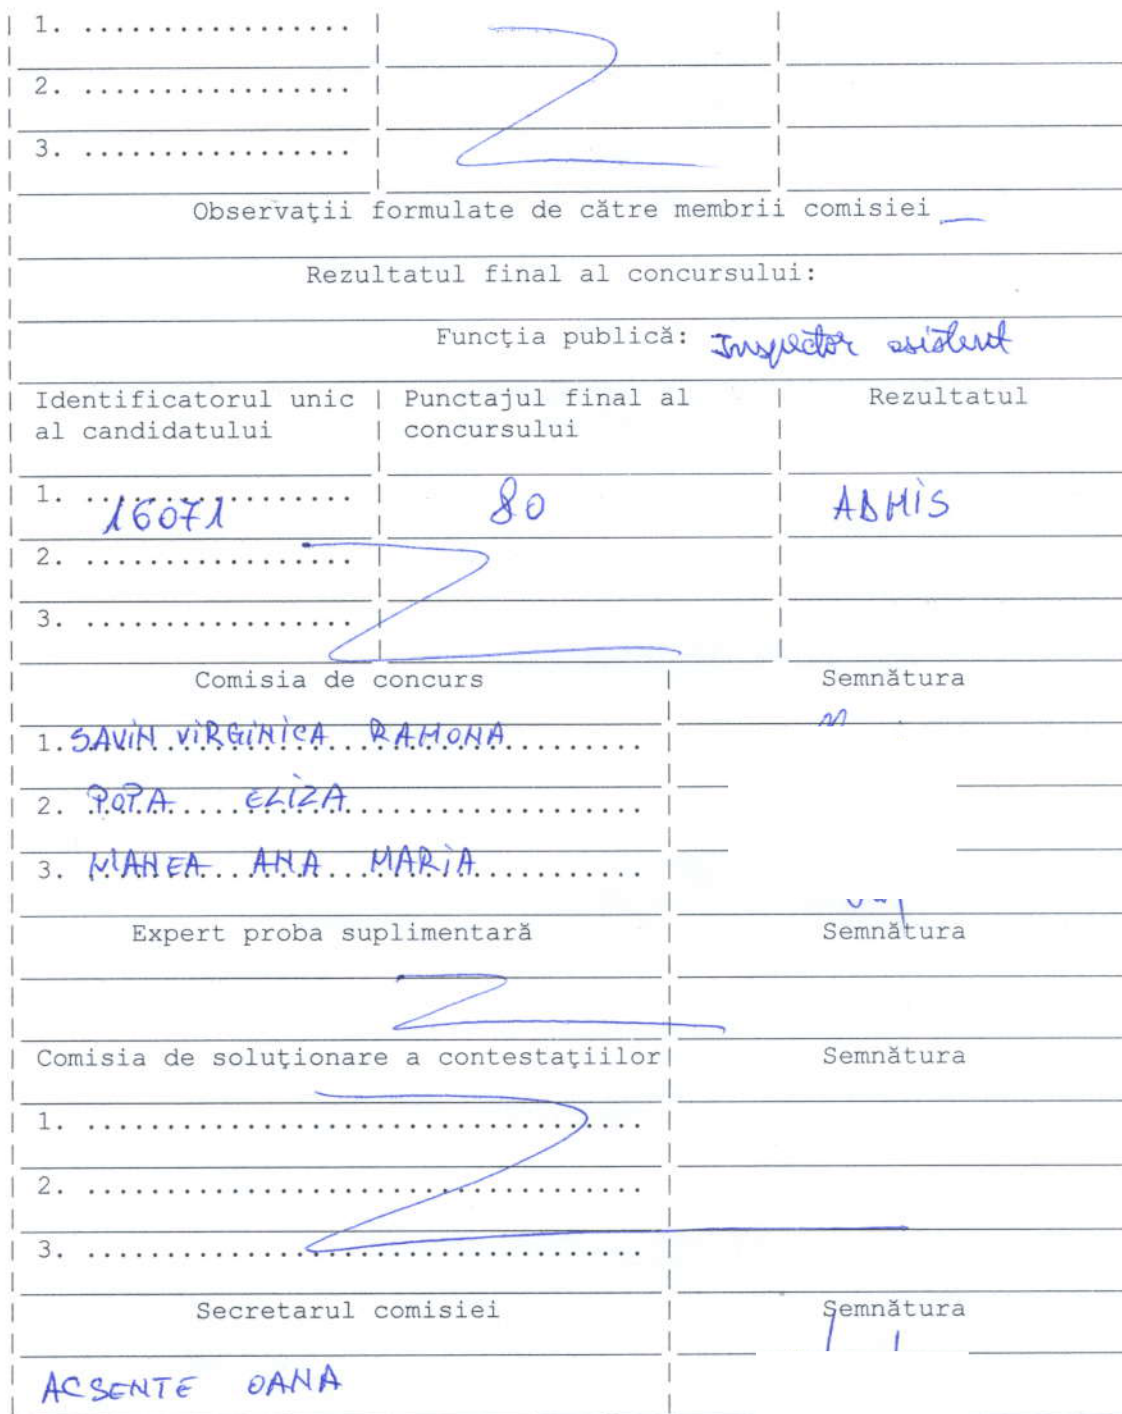 1. .................
2. .................
3. .................
Observaţii formulate de către membrii comisiei —
Rezultatul final al concursului:
Funcţia publică: Inspector asistent
Identificatorul unic al candidatului | Punctajul final al concursului | Rezultatul
1. 16071 80 ADMIS
2. .................
3. .................
Comisia de concurs | Semnătura
1. SAVIN VIRGINICA RAMONA
2. POPA ELIZA
3. MANEA ANA MARIA
Expert proba suplimentară | Semnătura
Comisia de soluţionare a contestaţiilor | Semnătura
1. ...................................
2. ...................................
3. ...................................
Secretarul comisiei | Semnătura
ACSENTE OANA